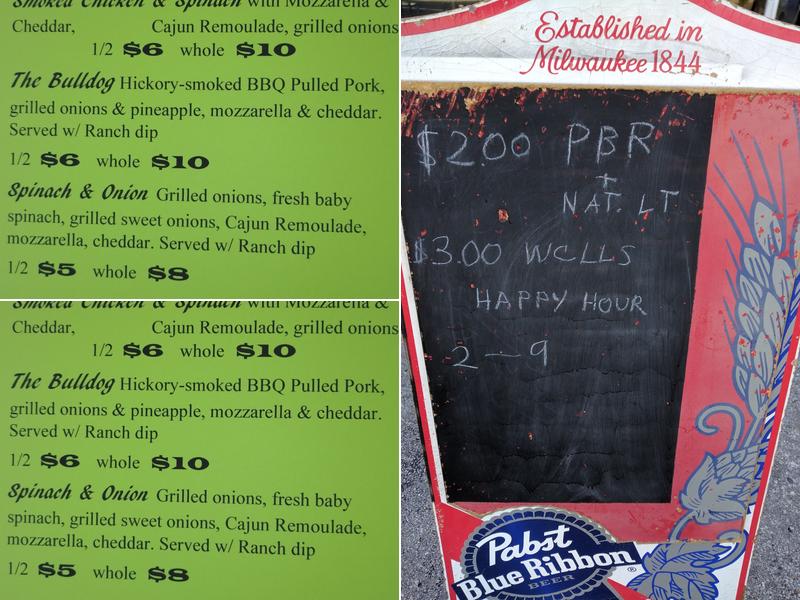 Smoked Chicken & Spinach with Mozzarella &
Cheddar, Cajun Remoulade, grilled onions
1/2 $6 whole $10
The Bulldog Hickory-smoked BBQ Pulled Pork,
grilled onions & pineapple, mozzarella & cheddar.
Served w/ Ranch dip
1/2 $6 whole $10
Spinach & Onion Grilled onions, fresh baby
spinach, grilled sweet onions, Cajun Remoulade,
mozzarella, cheddar. Served w/ Ranch dip
1/2 $5 whole $8
Smoked Chicken & Spinach with Mozzarella &
Cheddar, Cajun Remoulade, grilled onions
1/2 $6 whole $10
The Bulldog Hickory-smoked BBQ Pulled Pork,
grilled onions & pineapple, mozzarella & cheddar.
Served w/ Ranch dip
1/2 $6 whole $10
Spinach & Onion Grilled onions, fresh baby
spinach, grilled sweet onions, Cajun Remoulade,
mozzarella, cheddar. Served w/ Ranch dip
1/2 $5 whole $8
Established in
Milwaukee 1844
$2.00 PBR
+
NAT. LT
$3.00 WELLS
HAPPY HOUR
2 — 9
Pabst
Blue Ribbon®
BEER